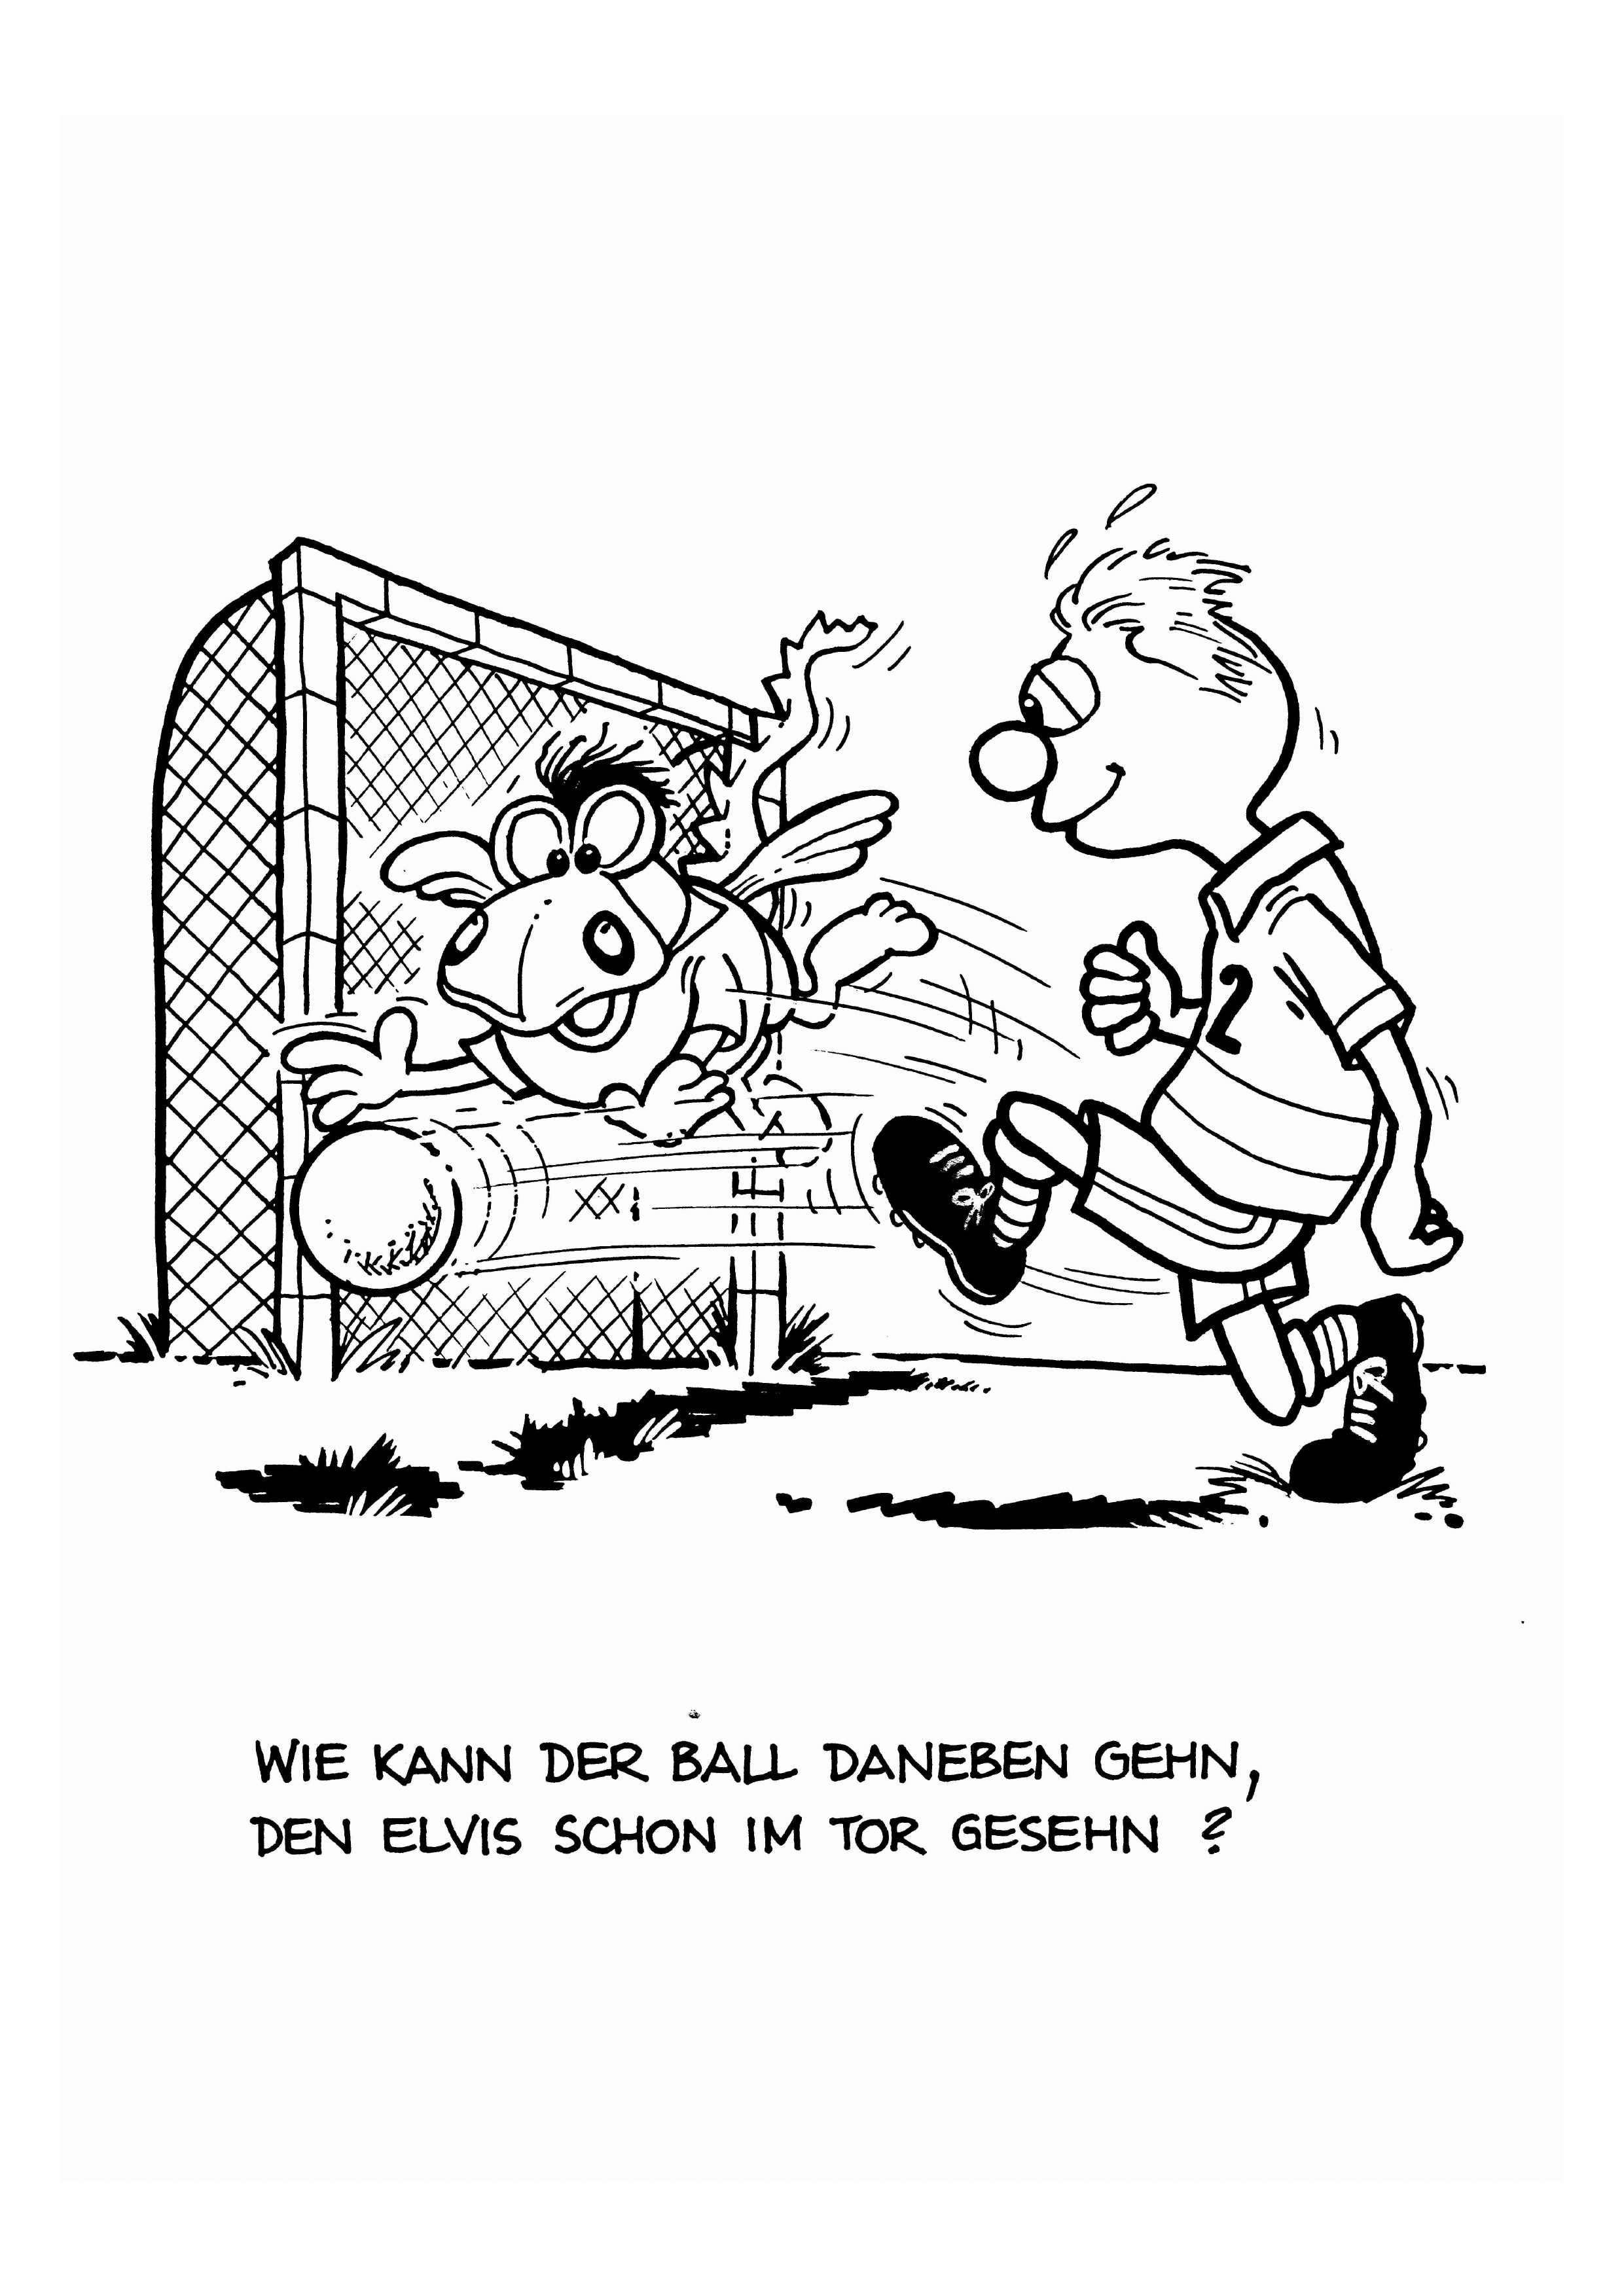 2
WIE KANN DER BALL DANEBEN GEHN,
DEN ELVIS SCHON IM TOR GESEHN ?